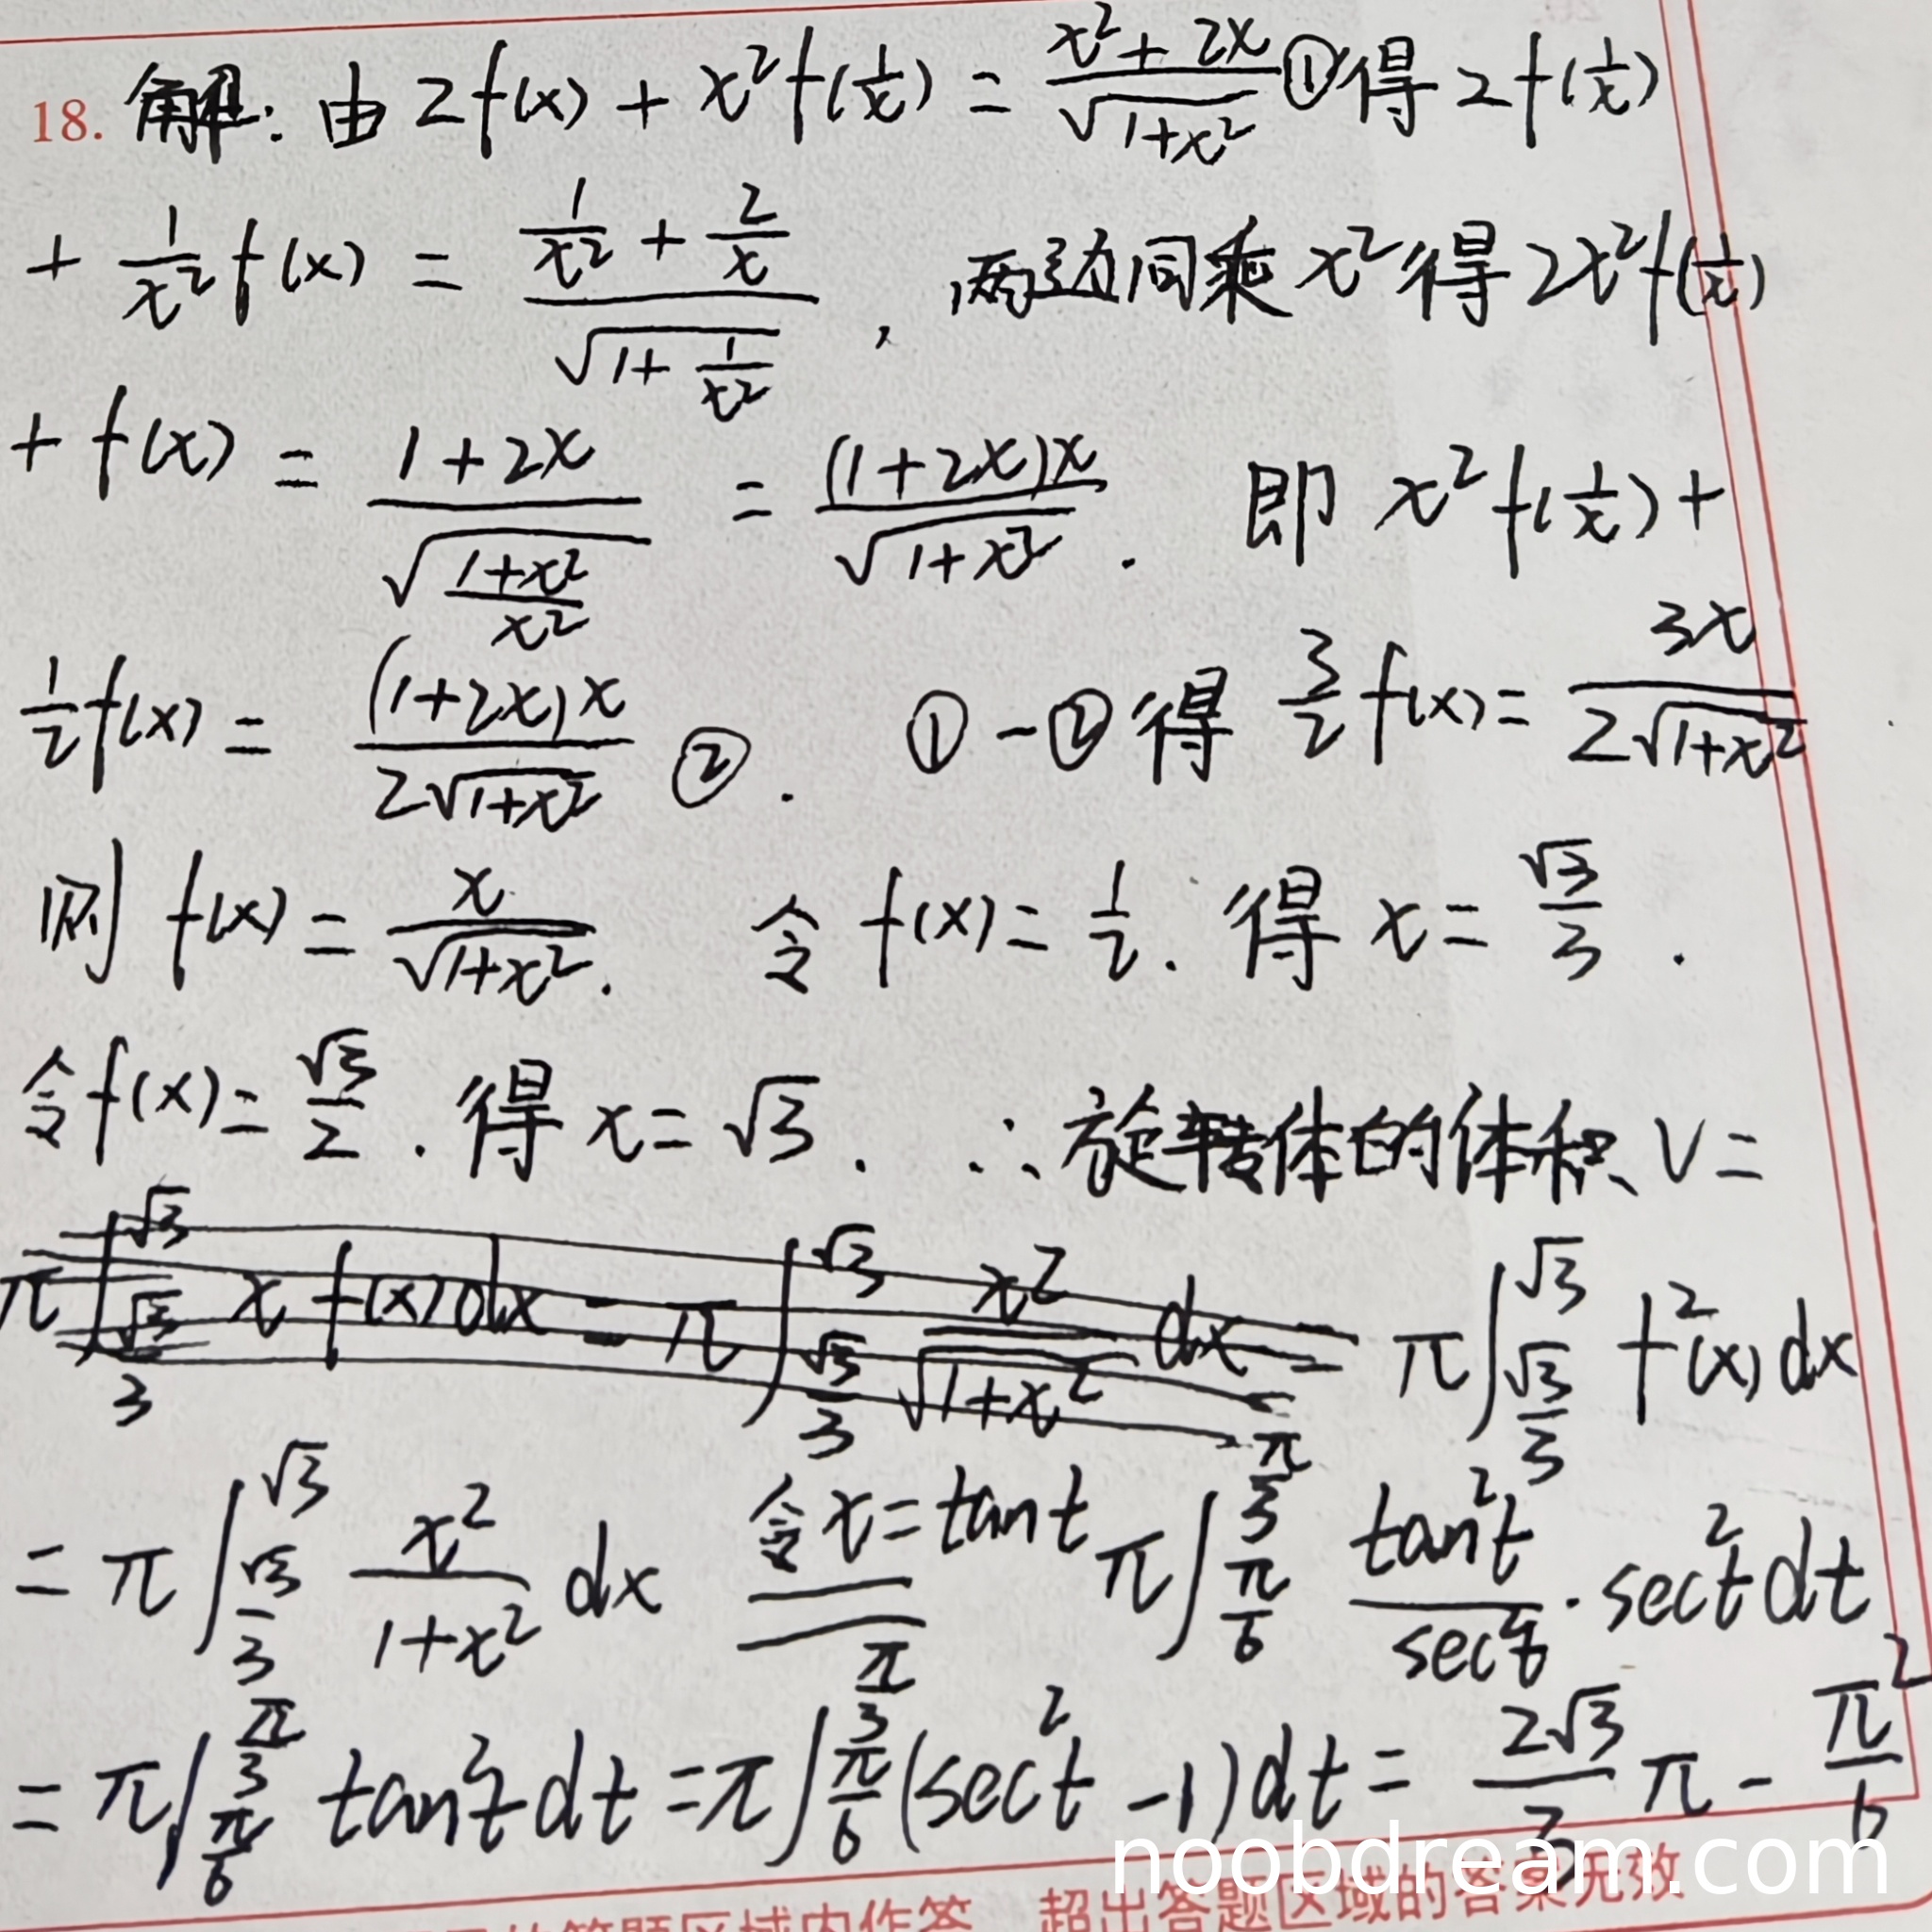 18. 解: 由 2f(x) + x²f(1/x) = (x²+2x)/√(1+x²) ① 得 2f(1/x)
+ 1/x² f(x) = (1/x² + 2/x)/√(1+1/x²) , 两边同乘 x² 得 2x²f(1/x)
+ f(x) = (1+2x)/√((1+x²)/x²) = (1+2x)x/√(1+x²) . 即 x²f(1/x) +
1/2 f(x) = (1+2x)x/(2√(1+x²)) ② . ①-②得 3/2 f(x) = 3x/(2√(1+x²))
则 f(x) = x/√(1+x²) . 令 f(x) = 1/2 . 得 x = √3/3 .
令 f(x) = √3/2 . 得 x = √3 . ∴旋转体的体积 V =
π∫_{√3/3}^{√3} x f(x) dx = π∫_{√3/3}^{√3} x²/√(1+x²) dx = π∫_{√3/3}^{√3} f²(x) dx
= π∫_{√3/3}^{√3} x²/(1+x²) dx 令 x = tan t π∫_{π/6}^{π/3} tan²t/sec²t · sec²t dt
= π∫_{π/6}^{π/3} tan²t dt = π∫_{π/6}^{π/3} (sec²t - 1) dt = 2√3/3 π - π²/6
noobdream.com
答题区域内作答 超出答题区域的答案无效